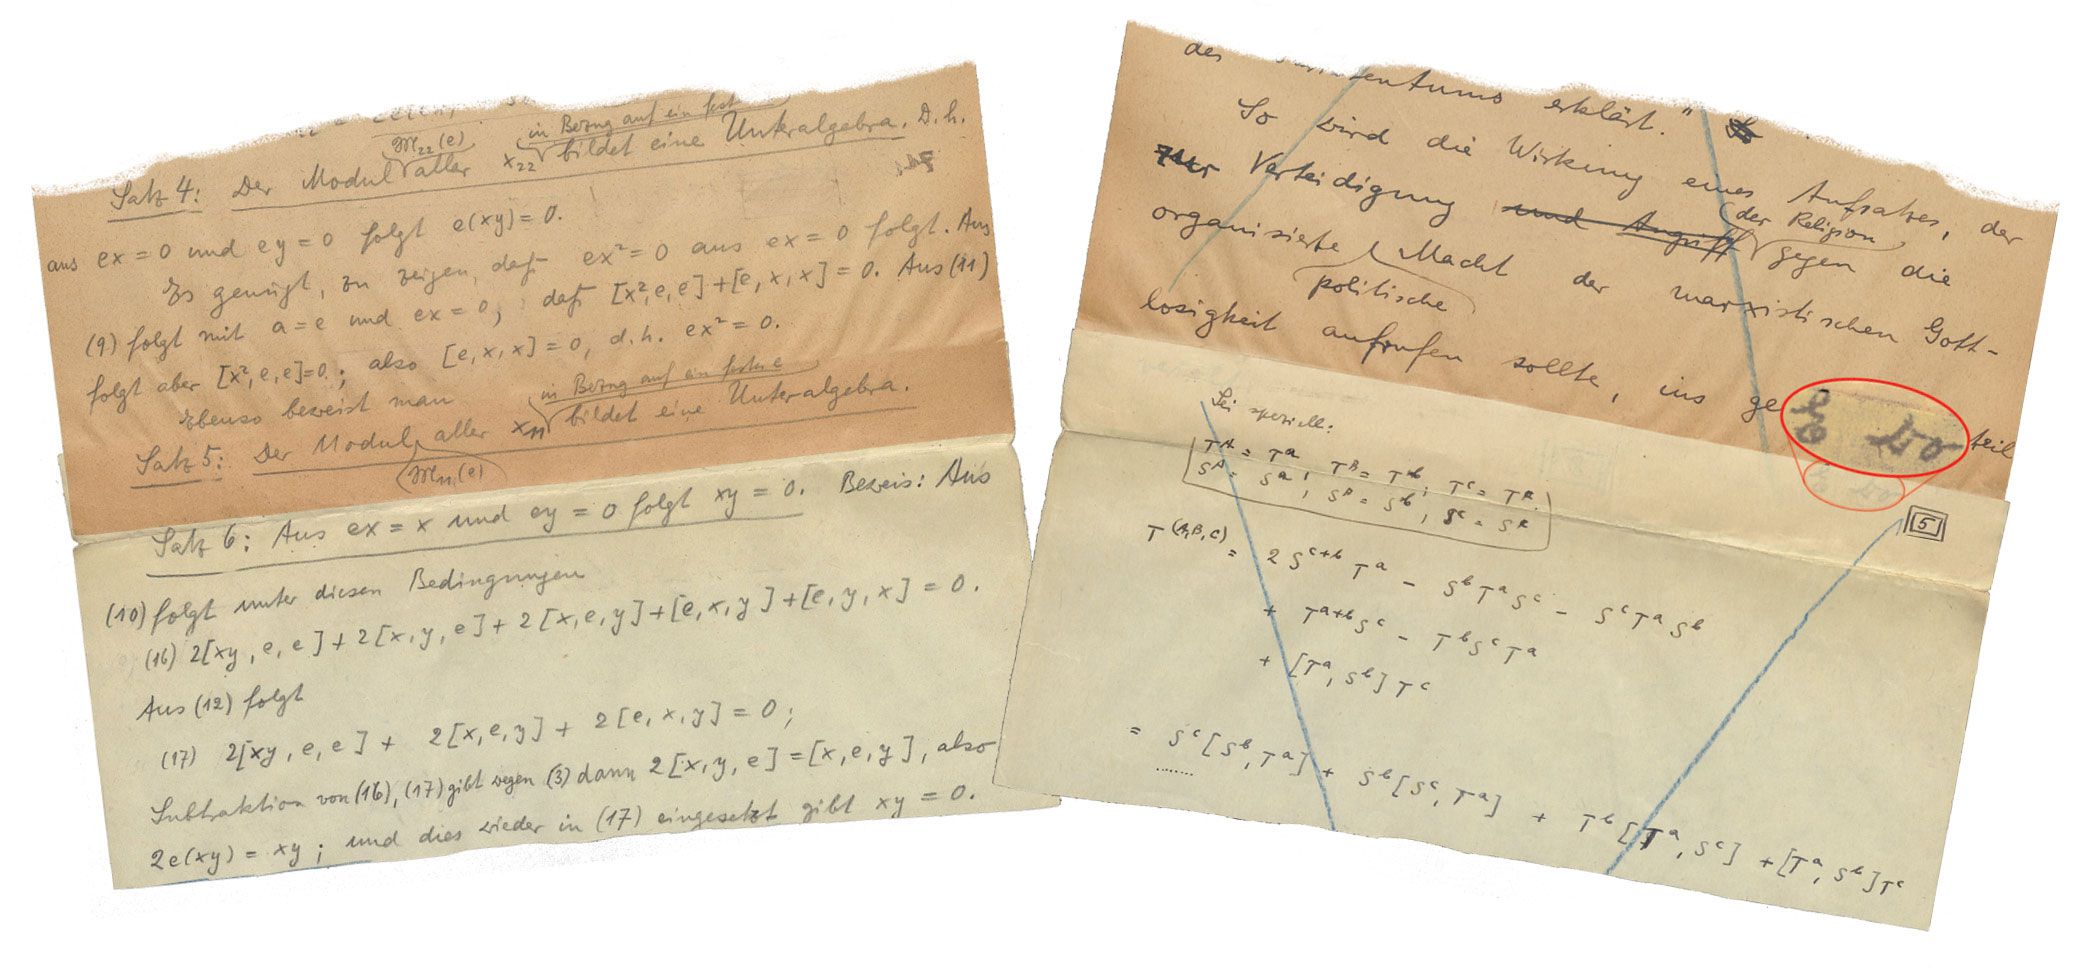 M₂₂(e)
in Bezug auf ein fest
Satz 4: Der Modul aller x₂₂ bildet eine Unteralgebra. D.h.
aus ex = 0 und ey = 0 folgt e(xy) = 0.
Es genügt, zu zeigen, daß ex² = 0 aus ex = 0 folgt. Aus
(9) folgt mit a = e und ex = 0, daß [x², e, e] + [e, x, x] = 0. Aus (11)
folgt aber [x², e, e] = 0; also [e, x, x] = 0, d.h. ex² = 0.
Ebenso beweist man
in Bezug auf ein festes e
Satz 5: Der Modul aller x₁₁ bildet eine Unteralgebra.
M₁₁(e)
Satz 6: Aus ex = x und ey = 0 folgt xy = 0. Beweis: Aus
(10) folgt unter diesen Bedingungen
(16) 2[xy, e, e] + 2[x, y, e] + 2[x, e, y] + [e, x, y] + [e, y, x] = 0.
Aus (12) folgt
(17) 2[xy, e, e] + 2[x, e, y] + 2[e, x, y] = 0;
Subtraktion von (16), (17) gibt wegen (3) dann 2[x, y, e] = [x, e, y], also
2e(xy) = xy; und dies wieder in (17) eingesetzt gibt xy = 0.
des
entums erklärt."
So wird die Wirkung eines Aufsatzes, der
zur Verteidigung und Angriff der Religion gegen die
organisierte Macht der marxistischen Gott-
politische
losigkeit aufrufen sollte, ins ge
teil
Sei speziell:
T^A = T^a, T^B = T^b; T^C = T^c
S^A = S^a; S^B = S^b, S^C = S^c
5
T^(A,B,C) = 2 S^(c+b) T^a - S^b T^a S^c - S^c T^a S^b
+ T^(a+b) S^c - T^b S^c T^a
+ [T^a, S^b] T^c
= S^c [S^b, T^a] + S^b [S^c, T^a] + T^b [T^a, S^c] + [T^a, S^b] T^c